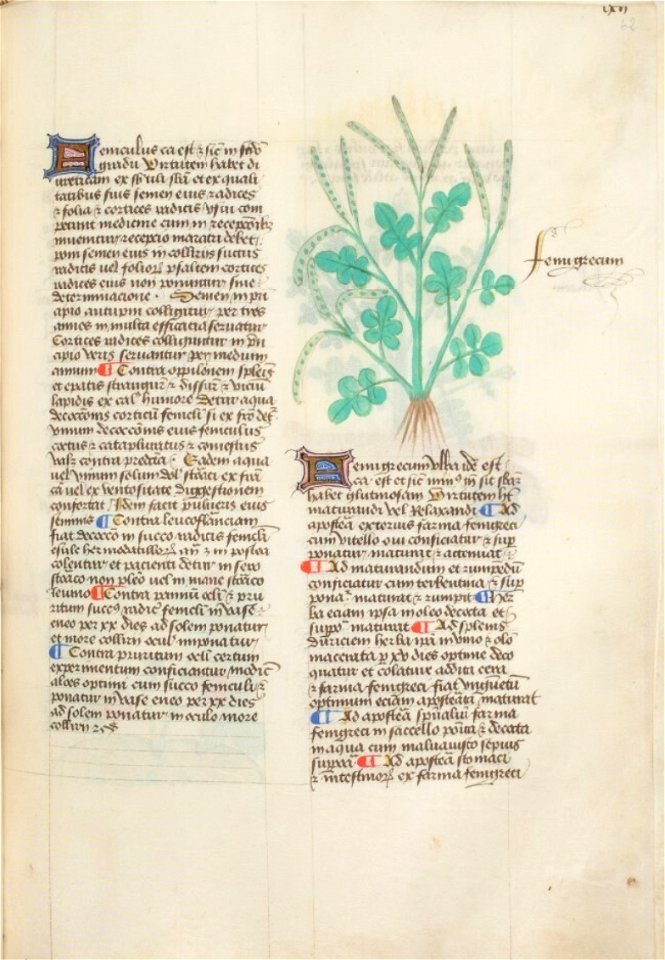 lxii
62
Feniculus ca est & sic in scdo
gradu Virtutem habet di
ureticam ex subtili sba et ex quali
tatibus suis semen eius radices
& folia & cortices radicis usui com
petunt medicine cum in receptionibus
invenitur recepcio maratri debet
poni semen eius in colliriis succus
radicis vel folior
radices eius non ponuntur sine
determinacione Semen in prin
cipio autupni colligitur per tres
annos in multa efficacia servatur
Cortices radices colliguntur in prin
cipio veris servantur per medium
annum Contra oppilonem splenis
et epatis strangur & dissur & viciu
lapidis ex cal humore Detur aqua
decoctionis corticu feniculi si ex fro det
vinum decoctionis eius feniculus
coctus & cataplatus & comestus
valz contra predicta Eadem aqua
vel vinum solum dol stoaci ex fra
ca vel ex ventositate diggestionem
confortat Idem facit pulveris eius
seminis Contra leucoflanciam
fiat decoctio in succo radicis feniculi
esule hermodatillor an & in postea
colentur et pacienti detur in sero
stoaco non pleo vel in mane stoaco
ieiuno Contra pannu oculi & pru
ritum succus radic feniculi in vase
eneo per xv dies ad solem ponatur
et more collirii ocul imponatur
Contra pruritum oculi certum
experimentum conficiantur medic
aloes optimi cum succo feniculi &
ponatur in vase eneo per xv dies
ad solem ponatur in oculo more
collirii
fenigrecum
Fenigrecum alba ide est
ca est et sic in sit sba
habet glutinosam Virtutem ht
maturandi vel Relaxandi Ad
apostea exterius farina fenigreci
cum vitello ovi conficiatur & sup
ponatur maturat & attenuat
Ad maturandum et rumpedu
conficiatur cum terbentina & sup
pona maturat & rumpit Her
ba eciam ipsa in oleo decocta et
suppo maturat Ad splenis
duriciem herba ipa in vino & oleo
macerata p xv dies optime deco
quatur et colature addita cera
& farina fenigreci fiat unguetum
optimum eciam aposteata maturat
Ad apostea spualiu farina
fenigreci in saccello posita & decocta
in aqua cum malvavisco sepius
Ad apostea stomaci
& intestinor ex farina fenigreci